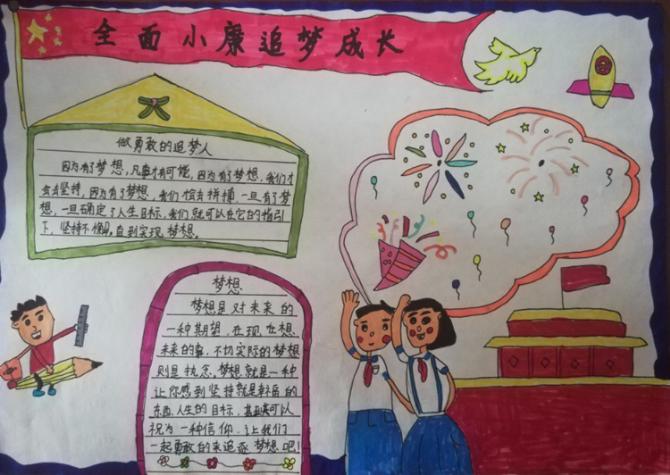 全面小康追梦成长
做勇敢的追梦人
因为有了梦想，凡事才有可能，因为有了梦想，我们才
会去坚持，因为有了梦想，我们恒去拼搏，一旦有了梦
想，一旦确定了人生目标，我们就可以在它的指引
下，坚持不懈，直到实现梦想。
梦想
梦想是对未来的
一种期望，在现在想
未来的事，不切实际的梦想
则是执念，梦想就是一种
让你感到坚持就是幸福的
东西，人生的目标，甚至可以
视为一种信仰，让我们
一起勇敢的来追逐梦想吧！